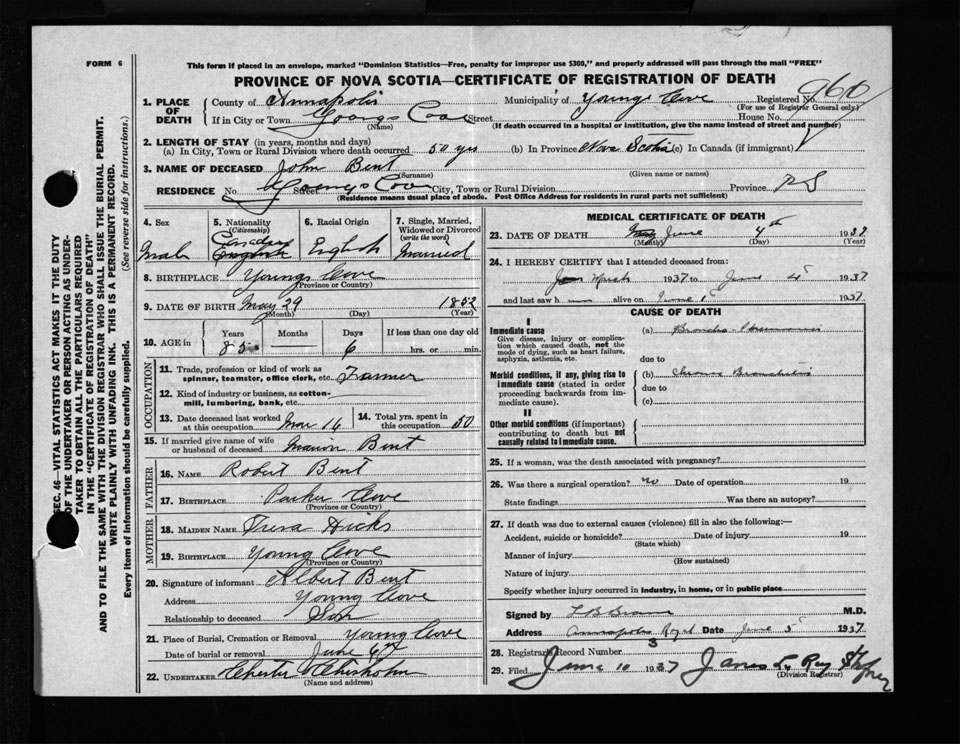 FORM 6
This form if placed in an envelope, marked "Dominion Statistics—Free, penalty for improper use $300," and properly addressed will pass through the mail "FREE"
PROVINCE OF NOVA SCOTIA—CERTIFICATE OF REGISTRATION OF DEATH
1. PLACE OF DEATH
County of Annapolis Municipality of Youngs Cove Registered No. 960
(For use of Registrar General only)
If in City or Town Youngs Cove Street House No.
(Name) (If death occurred in a hospital or institution, give the name instead of street and number)
2. LENGTH OF STAY (in years, months and days)
(a) In City, Town or Rural Division where death occurred 50 yrs (b) In Province Nova Scotia (c) In Canada (if immigrant)
3. NAME OF DECEASED John Bent
(Surname) (Given name or names)
RESIDENCE No. Street Youngs Cove City, Town or Rural Division Province N S
(Residence means usual place of abode. Post Office Address for residents in rural parts not sufficient)
4. Sex 5. Nationality (Citizenship) 6. Racial Origin 7. Single, Married, Widowed or Divorced (write the word)
Male English Married
8. BIRTHPLACE Youngs Cove
(Province or Country)
9. DATE OF BIRTH May 29 1852
(Month) (Day) (Year)
10. AGE in Years Months Days If less than one day old
85 6 hrs. or min.
OCCUPATION
11. Trade, profession or kind of work as spinner, teamster, office clerk, etc. Farmer
12. Kind of industry or business, as cotton-mill, lumbering, bank, etc.
13. Date deceased last worked at this occupation Mar 16 14. Total yrs. spent in this occupation 50
15. If married give name of wife or husband of deceased Marion Bent
FATHER
16. NAME Robert Bent
17. BIRTHPLACE Parker Cove
(Province or Country)
MOTHER
18. MAIDEN NAME Hicks
19. BIRTHPLACE Young Cove
(Province or Country)
20. Signature of informant Albert Bent
Address Young Cove
Relationship to deceased Son
21. Place of Burial, Cremation or Removal Young Cove
Date of burial or removal June 6th
22. UNDERTAKER Chester Chisholm
(Name and address)
MEDICAL CERTIFICATE OF DEATH
23. DATE OF DEATH June 4th 1937
(Month) (Day) (Year)
24. I HEREBY CERTIFY that I attended deceased from:
March 1937 to June 4 1937
and last saw h alive on June 1 1937
CAUSE OF DEATH
I
Immediate cause
Give disease, injury or complication which caused death, not the mode of dying, such as heart failure, asphyxia, asthenia, etc.
(a) Broncho-Pneumonia
due to
Morbid conditions, if any, giving rise to immediate cause (stated in order proceeding backwards from immediate cause).
(b) Chronic Bronchitis
due to
(c)
II
Other morbid conditions (if important) contributing to death but not causally related to immediate cause.
25. If a woman, was the death associated with pregnancy?
26. Was there a surgical operation? no Date of operation 19
State findings Was there an autopsy?
27. If death was due to external causes (violence) fill in also the following:—
Accident, suicide or homicide? Date of injury 19
(State which)
Manner of injury
(How sustained)
Nature of injury
Specify whether injury occurred in industry, in home, or in public place
Signed by M.D.
Address Annapolis Royal Date June 5 1937
28. Registrar's Record Number 3
29. Filed June 10 1937 James
(Division Registrar)
SEC. 46—VITAL STATISTICS ACT MAKES IT THE DUTY OF THE UNDERTAKER OR PERSON ACTING AS UNDERTAKER TO OBTAIN ALL THE PARTICULARS REQUIRED IN THE "CERTIFICATE OF REGISTRATION OF DEATH"
AND TO FILE THE SAME WITH THE DIVISION REGISTRAR WHO SHALL ISSUE THE BURIAL PERMIT.
WRITE PLAINLY WITH UNFADING INK. THIS IS A PERMANENT RECORD.
Every item of information should be carefully supplied. (See reverse side for instructions.)